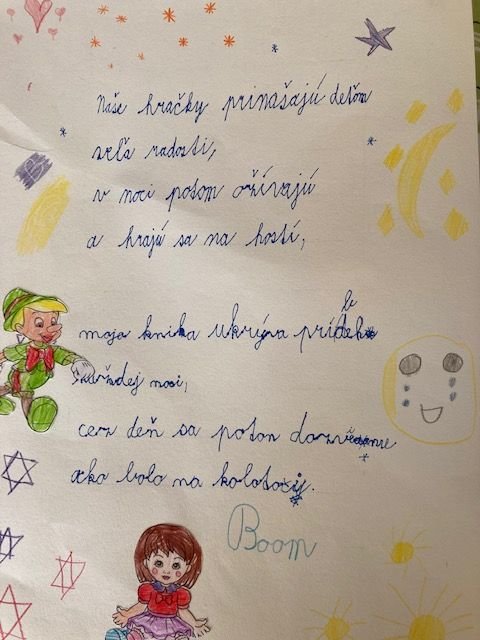 Naše hračky prinašajú deťom
veľa radosti,
v noci potom ožívajú
a hrajú sa na hostí,
moja kniha ukrýva príbeh
každej noci,
cez deň sa potom dozvieme
ako bolo na kolotoči.
Boom